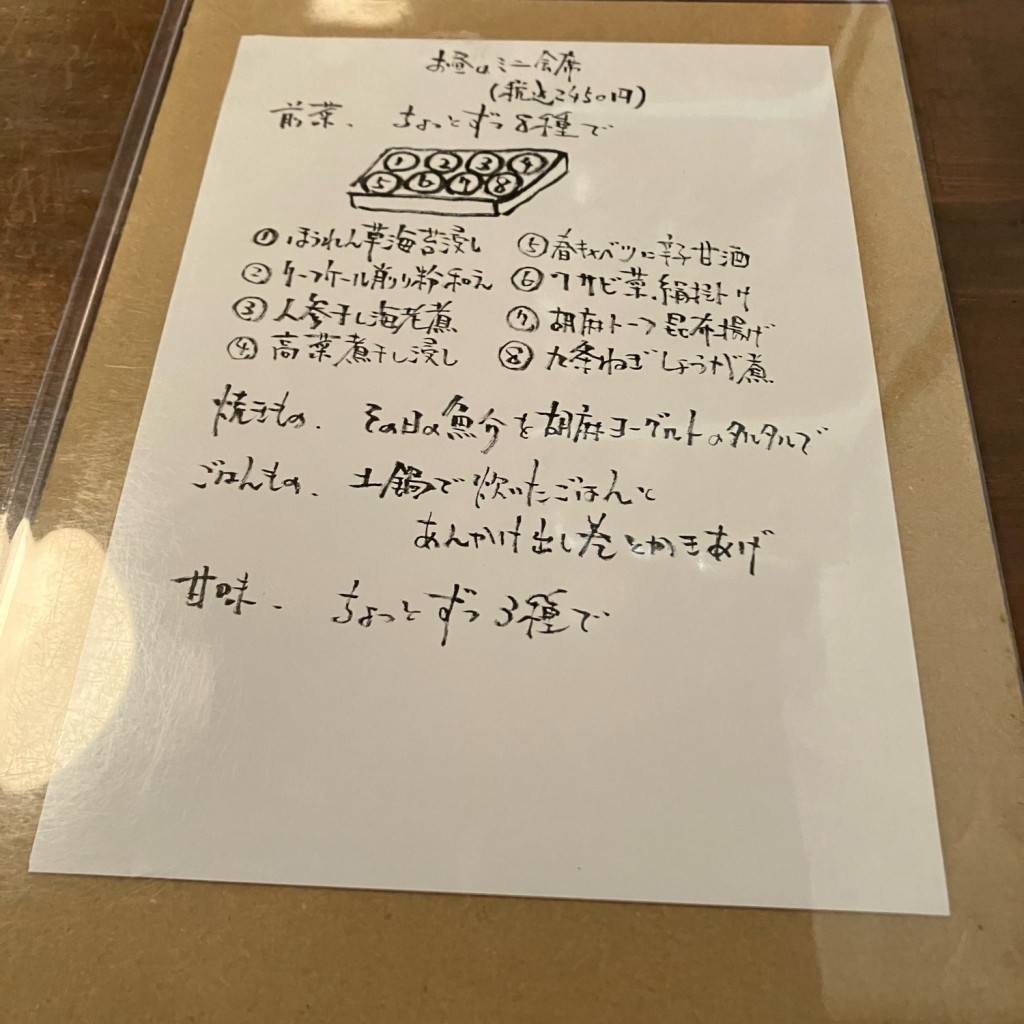 お昼のミニ会席
(税込2450円)
前菜、ちょっとずつ8種で
① ② ③ ④
⑤ ⑥ ⑦ ⑧
① ほうれん草海苔浸し
② ケールケール削り粉和え
③ 人参干し海老煮
④ 高菜煮干し浸し
⑤ 春キャベツに辛子甘酒
⑥ ワサビ菜、絹掛け
⑦ 胡麻トーフ昆布揚げ
⑧ 九条ねぎしょうが煮
焼きもの、その日の魚介を胡麻ヨーグルトのタルタルで
ごはんもの、土鍋で炊いたごはんと
あんかけ出し巻とかきあげ
甘味、ちょっとずつ3種で